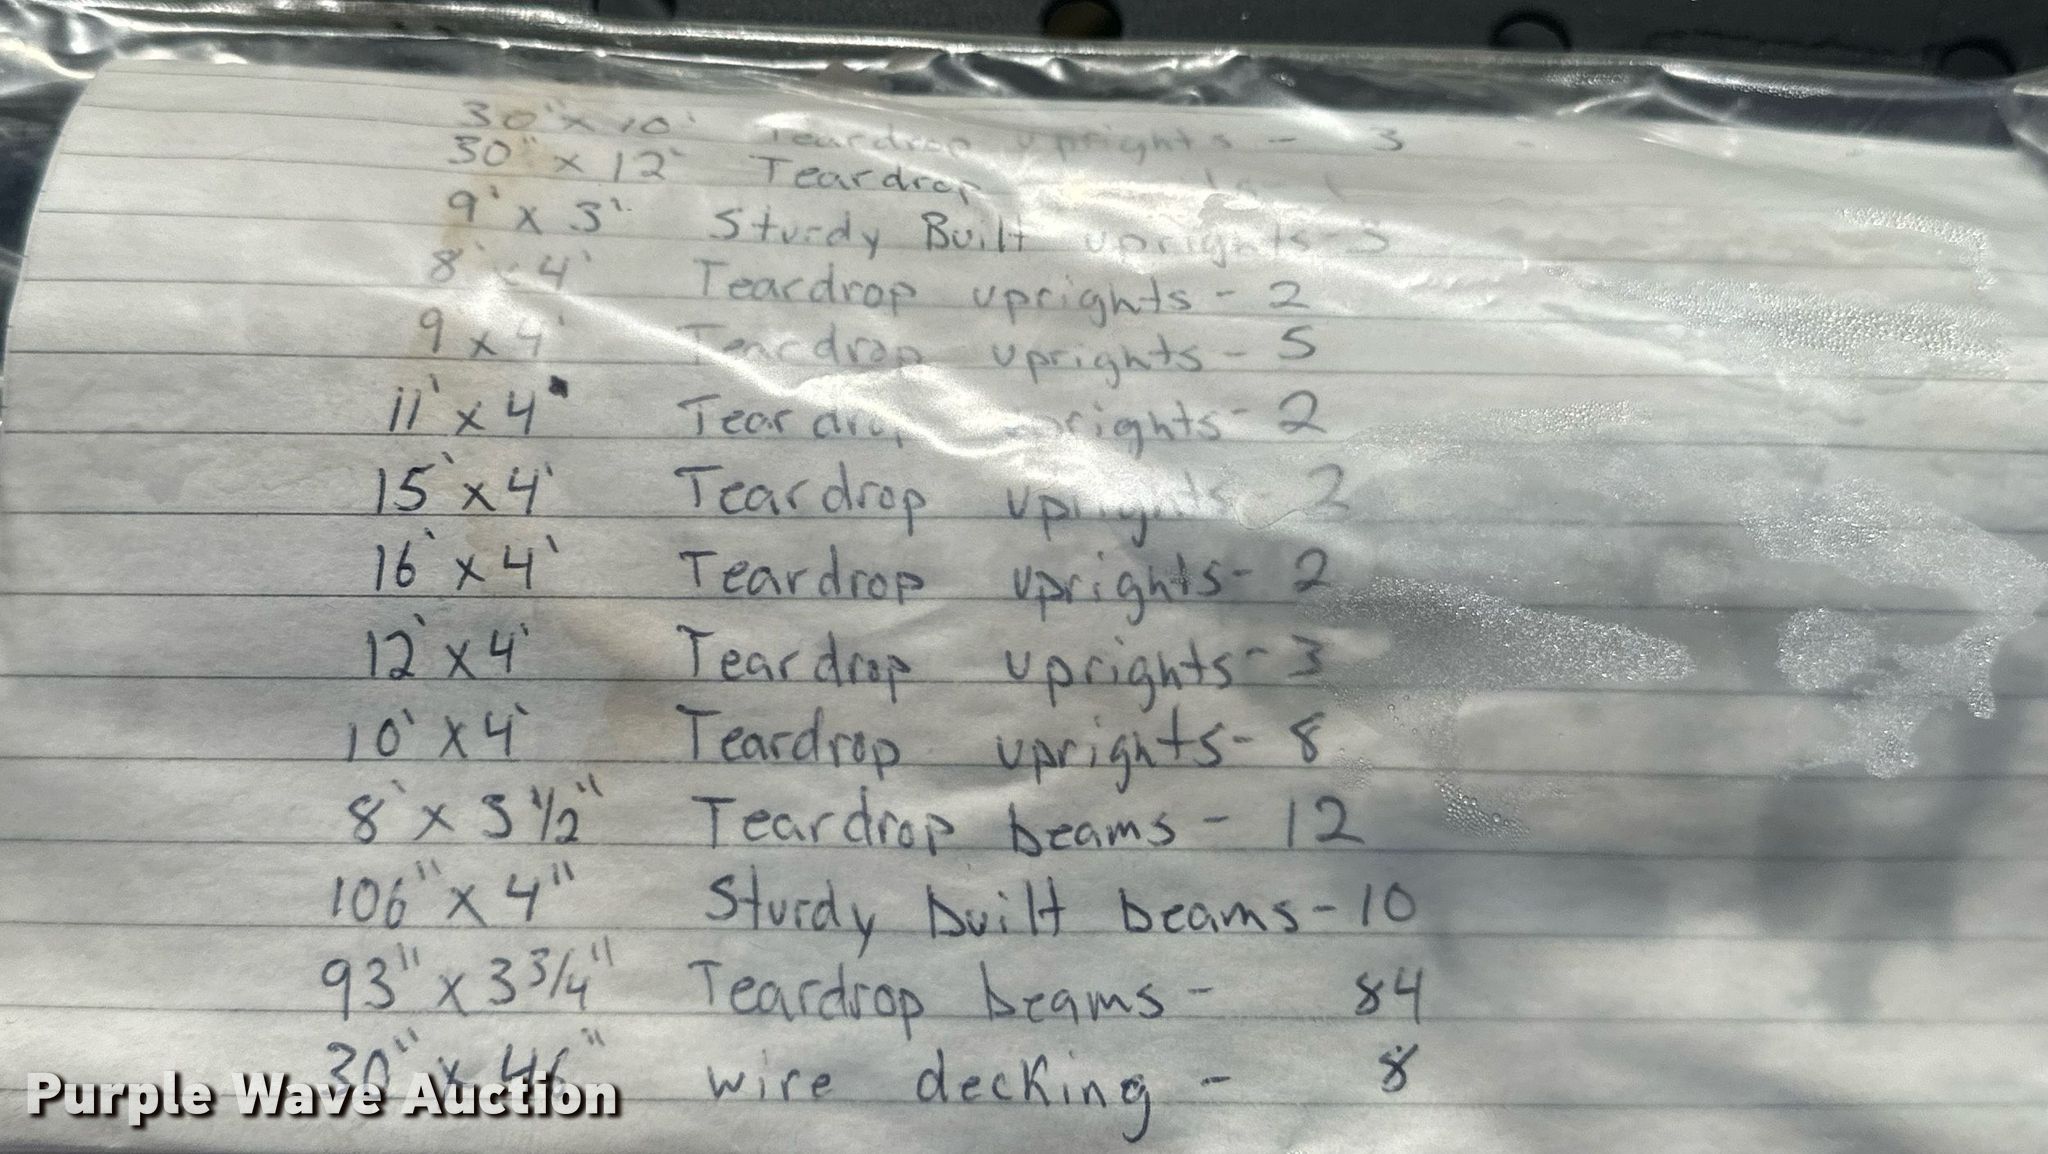 30" x 10' Teardrop uprights - 3
30" x 12' Teardrop
9' x 3' Sturdy Built uprights - 3
8' x 4' Teardrop uprights - 2
9 x 4' Teardrop uprights - 5
11' x 4' Teardrop uprights - 2
15' x 4' Teardrop uprights - 2
16' x 4' Teardrop uprights - 2
12' x 4' Teardrop uprights - 3
10' x 4' Teardrop uprights - 8
8' x 3 1/2" Teardrop beams - 12
106" x 4" Sturdy built beams - 10
93" x 3 3/4" Teardrop beams - 84
30" x 46" wire decking - 8
Purple Wave Auction